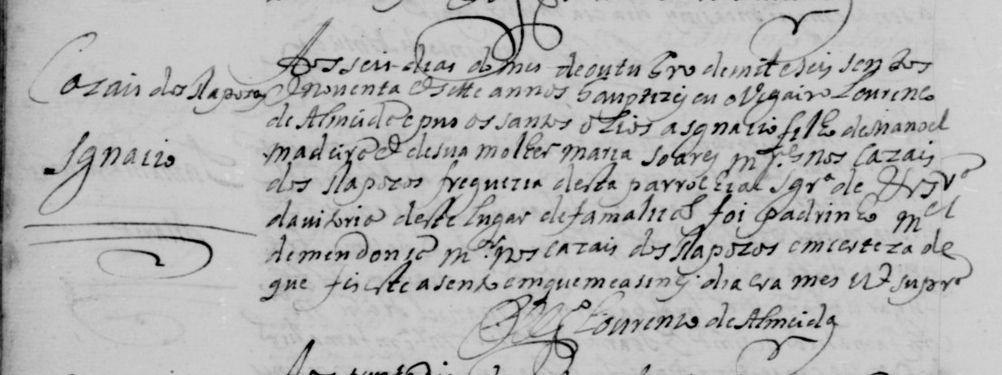 Cazais dos Raposos
Ignacio
Aos seis dias do mes de outubro de mil e seis sentos
e noventa e sette annos bauptizei eu o Vigairo Lourenco
de Almeida e pus os santos olios a Ignacio filho de Manoel
madeira e de sua molher maria soares m.res nos Cazais
dos Raposos freguezia desta parrochial Igr.ª de N Sr.ª
da vitoria deste lugar de famalicao foi padrinho M.el
de mendonça m.or nos cazais dos Raposos em certeza de
que fis este asento em que me asiney dia era mes ut supra
O Vig.º Lourenco de Almeida